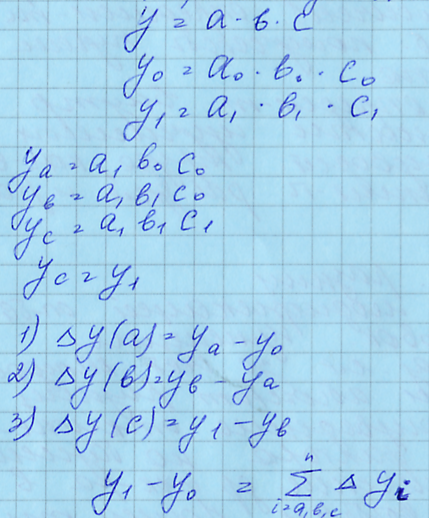 y = a · в · c
y₀ = a₀ · в₀ · c₀
y₁ = a₁ · в₁ · c₁
yₐ = a₁ в₀ c₀
y_в = a₁ в₁ c₀
y_c = a₁ в₁ c₁
y_c = y₁
1) Δy(a) = yₐ - y₀
2) Δy(в) = y_в - yₐ
3) Δy(c) = y₁ - y_в
y₁ - y₀ = Σⁿ_{i=a,в,c} Δ yᵢ